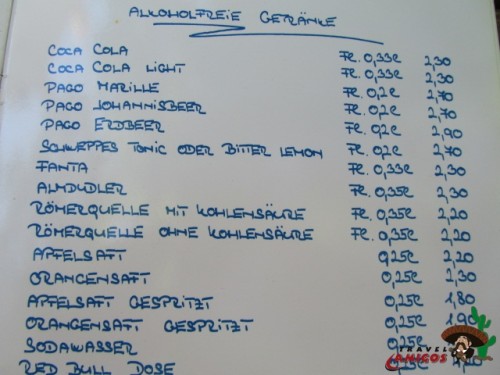 ALKOHOLFREIE GETRÄNKE
COCA COLA FL. 0,33l 2,30
COCA COLA LIGHT FL. 0,33l 2,30
PAGO MARILLE FL. 0,2l 2,70
PAGO JOHANNISBEER FL. 0,2l 2,70
PAGO ERDBEER FL. 0,2l 2,90
SCHWEPPES TONIC ODER BITTER LEMON FL. 0,2l 2,70
FANTA FL. 0,33l 2,30
ALMDUDLER FL. 0,35l 2,30
RÖMERQUELLE MIT KOHLENSÄURE FL. 0,35l 2,20
RÖMERQUELLE OHNE KOHLENSÄURE FL. 0,35l 2,20
APFELSAFT 0,25l 2,20
ORANGENSAFT 0,25l 2,30
APFELSAFT GESPRITZT 0,25l 1,80
ORANGENSAFT GESPRITZT 0,25l 1,90
SODAWASSER 0,25l
RED BULL DOSE
TRAVEL
AMIGOS